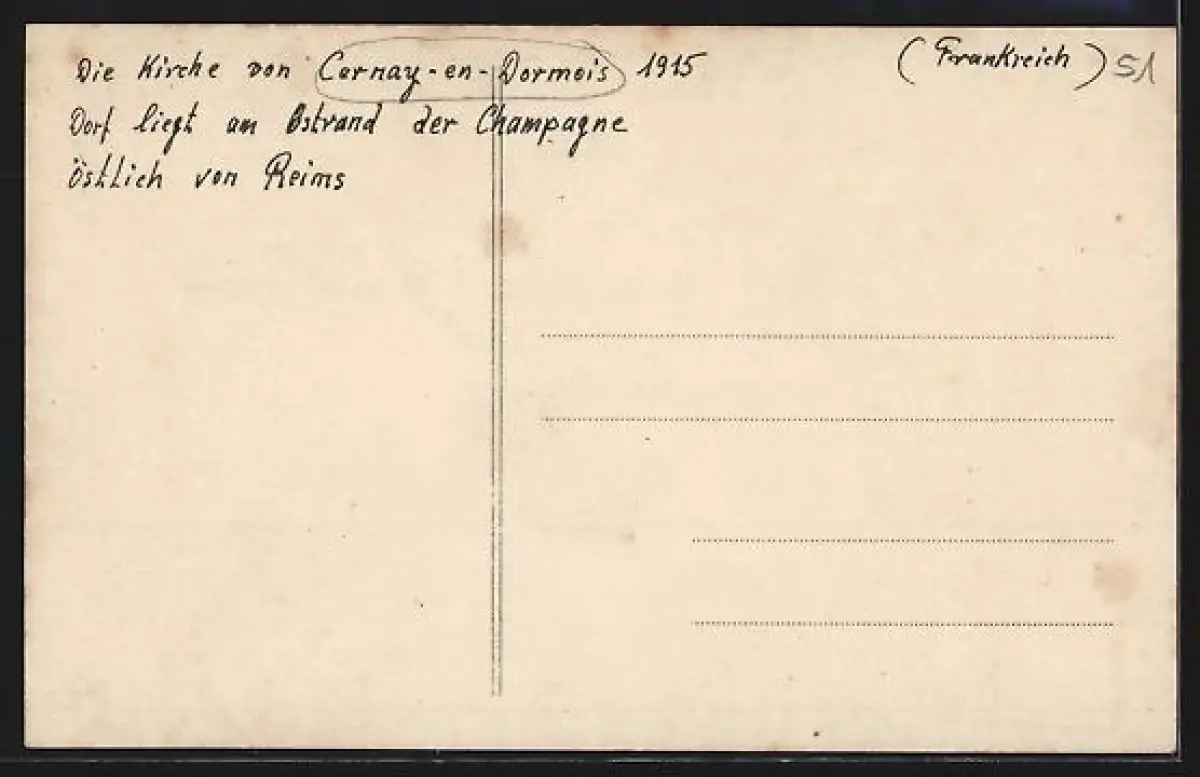 Die Kirche von Cernay-en-Dormois 1915 (Frankreich) 51
Dorf liegt am Ostrand der Champagne
östlich von Reims